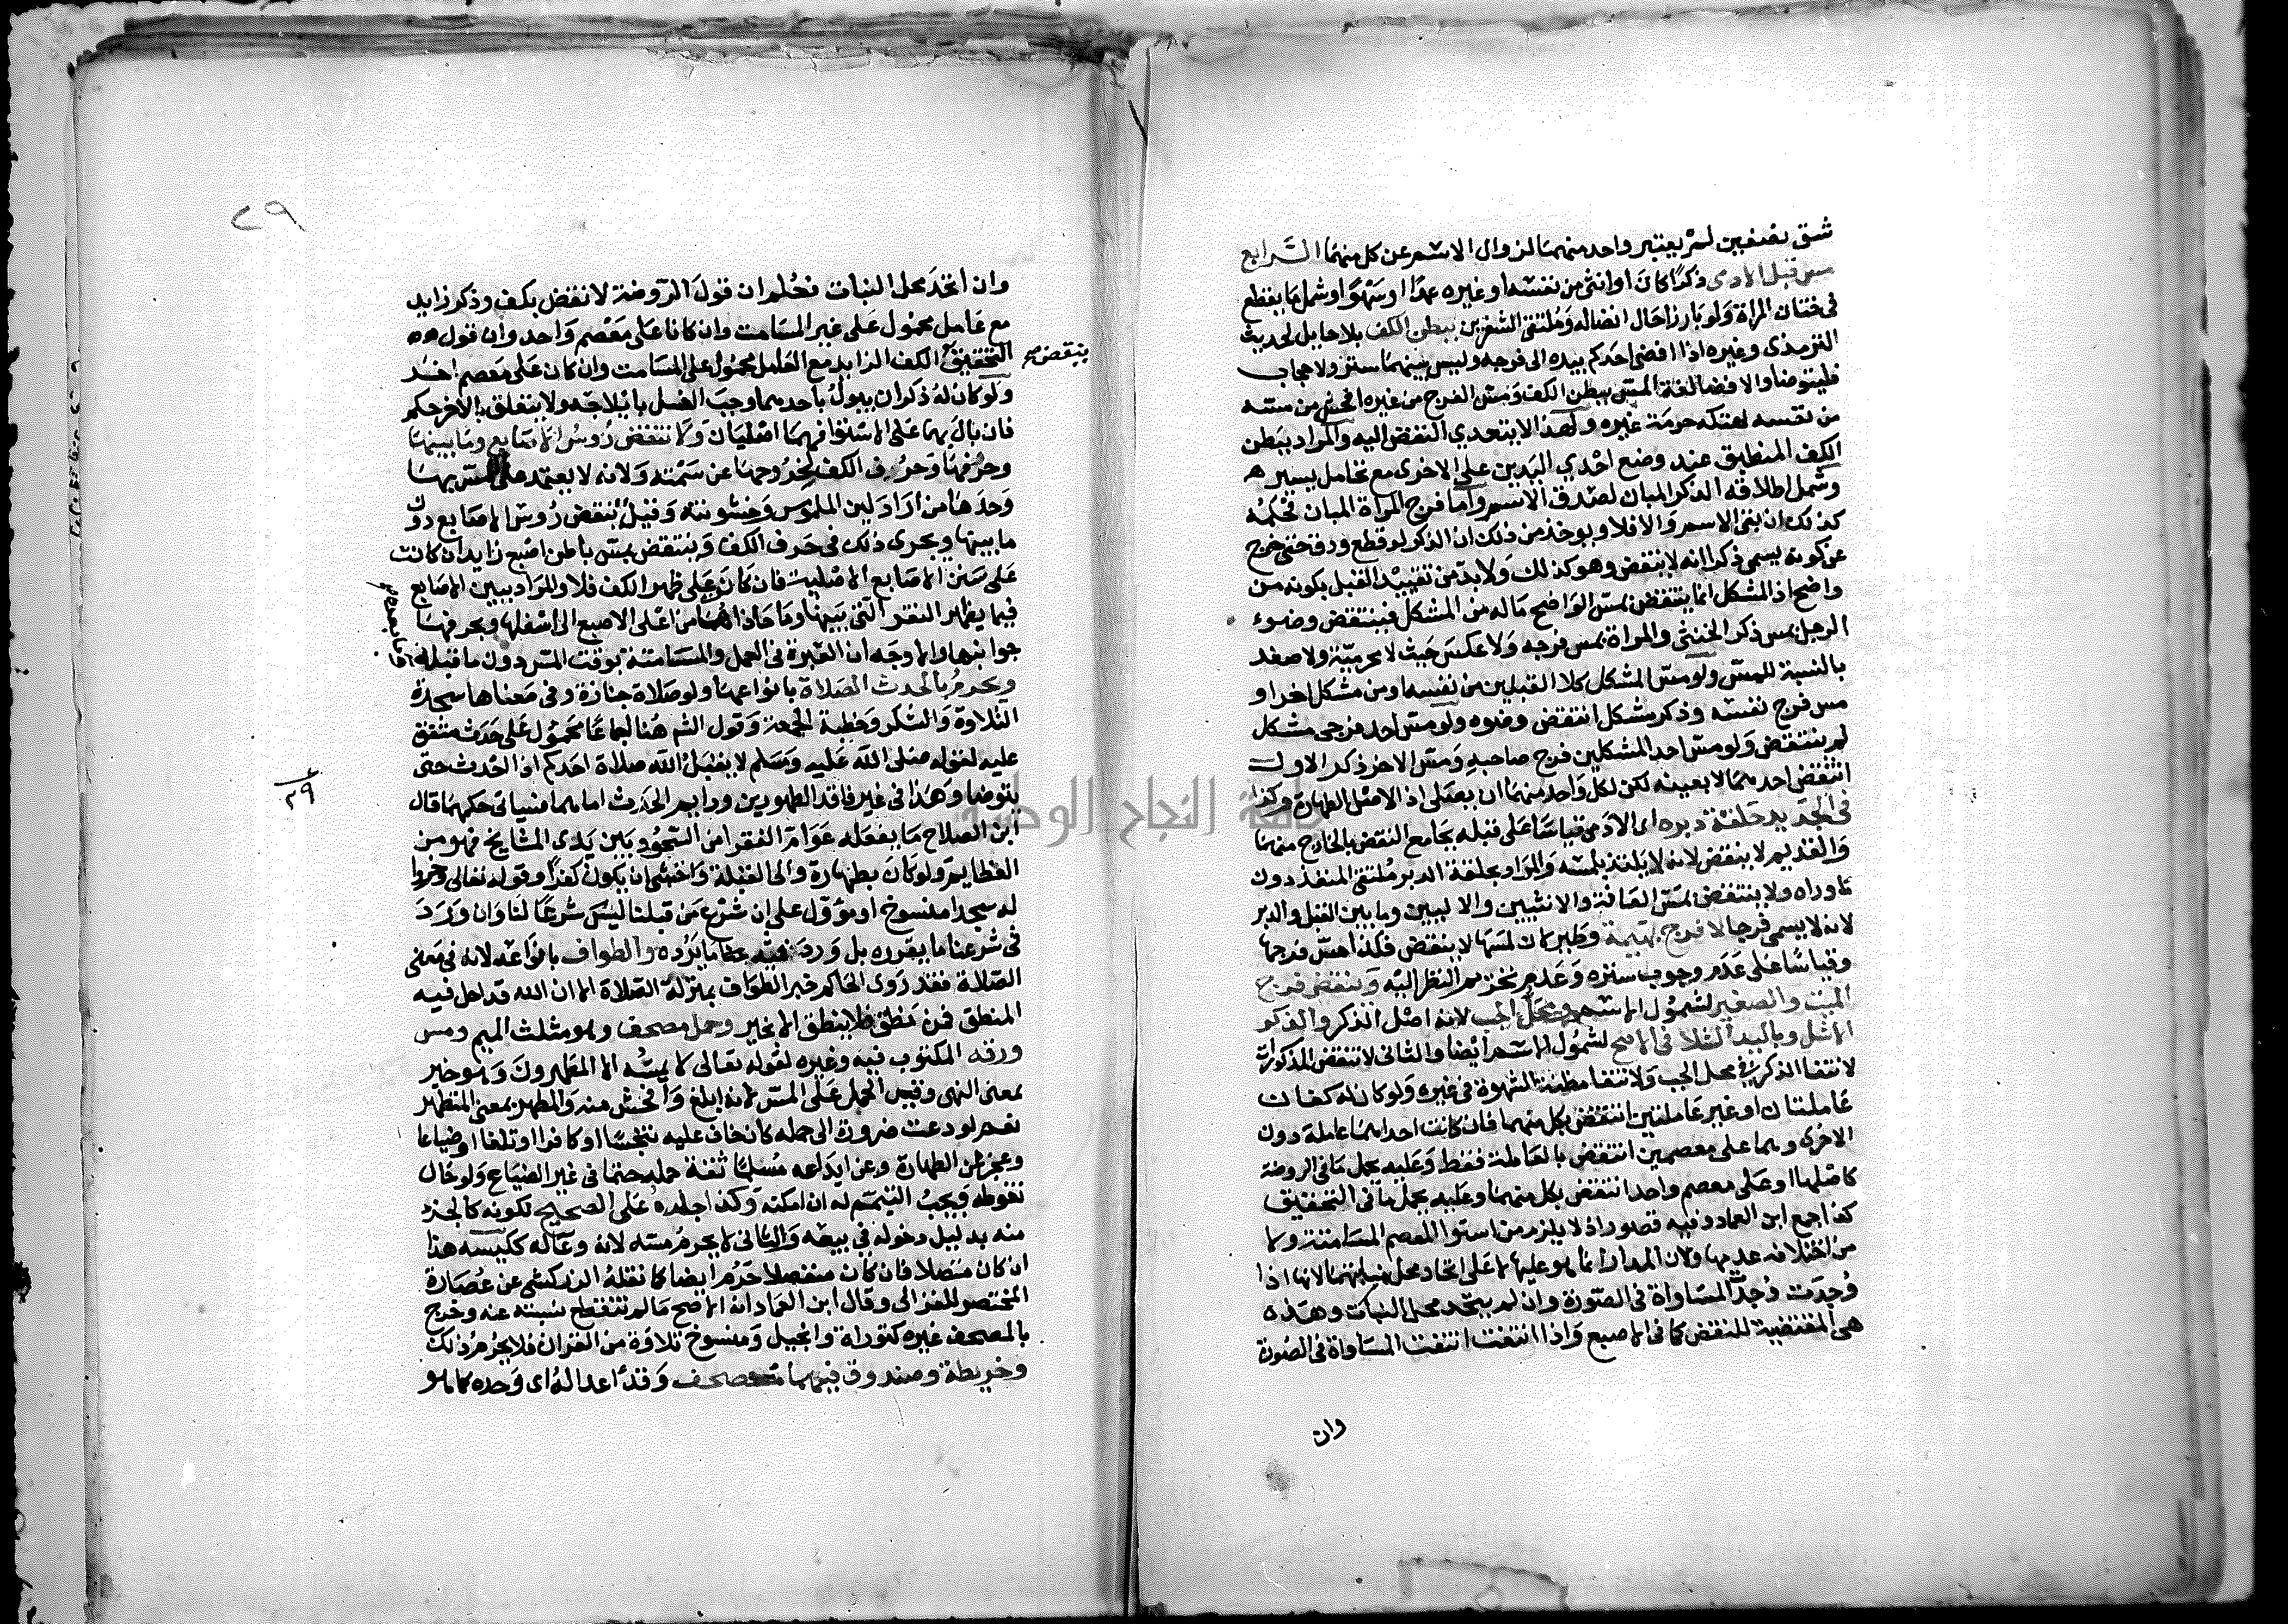 شق نصفين لم يعتبر واحد منهما لزوال الاسم عن كل منهما الرابع
مس قبل الادمي ذكرا كان او انثى من نفسه او غيره عمدا او سهوا وشمل ما يقطع
في ختان المراة ولو بارزا حال اتصاله وملتقى الشفرين ببطن الكف بلا حايل لحديث
الترمذي وغيره اذا افضى احدكم بيده الى فرجه وليس بينهما ستر ولا حجاب
فليتوضا والافضا لغة المس ببطن الكف ومس الفرج من غيره افحش من مسه
من نفسه لهتكه حرمة غيره ولهذا لا يتعدي النقض اليه والمراد ببطن
الكف المنطبق عند وضع احدي اليدين على الاخرى مع تحامل يسير
وشمل اطلاقه الذكر المبان لصدق الاسم واما فرج المراة المبان فحكمه
كذلك ان بقي الاسم والا فلا ويوخذ من ذلك ان الذكر لو قطع ودق حتى خرج
عن كونه يسمى ذكرا انه لا ينقض وهو كذلك ولا بد من تقييد القبل بكونه من
واضح اذ المشكل انما ينتقض بمس الواضح ما له من المشكل فينتقض وضوء
الرجل بمس ذكر الخنثى والمراة بمس فرجه ولا عكس حيث لا محرمية ولا صغر
بالنسبة للمس ولو مس المشكل كلا القبلين من نفسه او من مشكل اخر او
مس فرج نفسه وذكر مشكل انتقض وضوه ولو مس احد فرجي مشكل
لم ينتقض ولو مس احد المشكلين فرج صاحبه ومس الاخر ذكر الاول
انتقض احدهما لا بعينه لكن لكل واحد منهما ان يصلى اذ الاصل الطهارة وكذا
في الجديد حلقة دبره اي الادمي قياسا على قبله بجامع النقض بالخارج منهما
والقديم لا ينقض لانه لا يلتذ بلمسه والمراد بحلقة الدبر ملتقى المنفذ دون
ماوراه ولا ينتقض بمس العانة والانثيين والاليين وما بين القبل والدبر
لانه لا يسمى فرجا لا فرج بهيمة وطير كان لمسها لا ينقض فكذا مس فرجها
وقياسا على عدم وجوب ستره وعدم تحريم النظر اليه وينقض فرج
الميت والصغير لشمول الاسم ومحل الجب لانه اصل الذكر والذكر
الاشل وباليد الشلا في الاصح لشمول الاسم ايضا والثاني لا تنقض المذكورات
لانتفا الذكر في محل الجب ولانتفا مظنة الشهوة في غيره ولو كان له كفان
عاملتان او غير عاملتين انتقض بكل منهما فان كانت احداهما عاملة دون
الاخرى وهما على معصمين انتقض بالعاملة فقط وعليه يحمل ما في الروضة
كاصلها او على معصم واحد انتقض بكل منهما وعليه يحمل ما في التحقيق
كذا جمع ابن العماد وفيه قصور اذ لا يلزم من استوا المعصم المسامتة ولا
من اختلافه عدمها ولان المدار انما هو عليها لا على اتحاد محل نباتهما لانها اذا
وجدت وجد المساواة في الصورة وان لم يتحد محل النبات وهذه
هي المقتضية للنقض كما في الاصبع واذا انتفت انتفت المساواة في الصورة
وان
٢٩
وان اتحد محل النبات فعلم ان قول الروضة لا نقض بكف وذكر زايد
مع عامل محمول على غير المسامت وان كانا على معصم واحد وان قول
التحقيق الكف الزايد مع العامل محمول على المسامت وان كان على معصم اخر
ينتقض صح
ولو كان له ذكران يبول باحدهما وجب الغسل بايلاجه ولا يتعلق بالاخر حكم
فان بال بهما على الاستوا فهما اصليان ولا تنقض روس الاصابع وما بينهما
وحرفها وحرف الكف لخروجها عن سمته ولانه لا يعتمد على المس بها
وحدها من اراد لين الملموس وخشونته وقيل تنقض روس الاصابع دون
ما بينها ويجرى ذلك في حرف الكف وينتقض بمس باطن اصبع زايد ان كانت
على سنن الاصابع الاصلية فان كان على ظهر الكف فلا والمراد ببين الاصابع
فيما يظهر النقر التي بينها وما حاذاها من اعلى الاصبع الى اسفلها وبحرفها
جوانبها والاوجه ان العبرة في العمل والمسامتة بوقت المس دون ما قبله
ويحرم بالحدث الصلاة بانواعها ولو صلاة جنازة وفي معناها سجدة
التلاوة والشكر وخطبة الجمعة وقول الشم هنا اجماعا محمول على حدث متفق
عليه لقوله صلى الله عليه وسلم لا يقبل الله صلاة احدكم اذا احدث حتى
يتوضا وهذا في غير فاقد الطهورين ودايم الحدث اما هما فسياتي حكمهما قال
٢٩
ابن الصلاح ما يفعله عوام الفقرا من السجود بين يدى المشايخ فهو من
العظايم ولو كان بطهارة والى القبلة واخشى ان يكون كفرا وقوله تعالى وخروا
له سجدا منسوخ او مؤول على ان شرع من قبلنا ليس شرعا لنا وان ورد
في شرعنا ما يقرره بل ورد فيه ما يرده والطواف بانواعه لانه في معنى
الصلاة فقد روى الحاكم خبر الطواف بمنزلة الصلاة الا ان الله قد احل فيه
المنطق فمن نطق فلا ينطق الا بخير وحمل مصحف وهو مثلث الميم ومس
ورقه المكتوب فيه وغيره لقوله تعالى لا يمسه الا المطهرون وهو خبر
بمعنى النهي وقيس الحمل على المس لانه ابلغ وافحش منه والمطهر بمعنى المتطهر
نعم لو دعت ضرورة الى حمله كان خاف عليه تنجسا او كافرا او تلفا او ضياعا
وعجز عن الطهارة وعن ايداعه مسلما ثقة حمله حتما في غير الضياع ولو حال
تغوطه ويجب التيمم له ان امكنه وكذا جلده على الصحيح لكونه كالجزء
منه بدليل دخوله في بيعه والثاني لا يحرم مسه لانه وعآ له ككيسه هذا
ان كان متصلا فان كان منفصلا حرم ايضا كما نقله الزركشي عن عصارة
المختصر للغزالى وقال ابن العماد انه الاصح ما لم تنقطع نسبته عنه وخرج
بالمصحف غيره كتوراة وانجيل ومنسوخ تلاوة من القران فلا يحرم ذلك
وخريطة وصندوق فيهما مصحف وقد اعدا له اي وحده كما هو